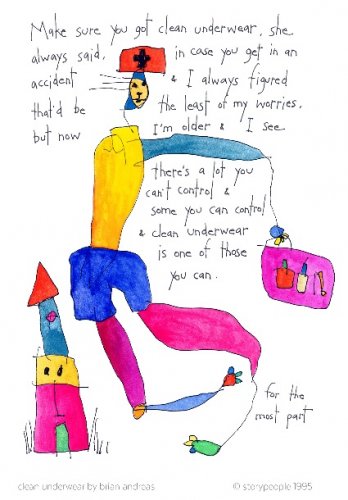 Make sure you got clean underwear, she
always said, in case you get in an
accident & I always figured
that'd be the least of my worries,
but now I'm older & I see
there's a lot you
can't control &
some you can control
& clean underwear
is one of those
you can.
for the
most part
clean underwear by brian andreas © storypeople 1995